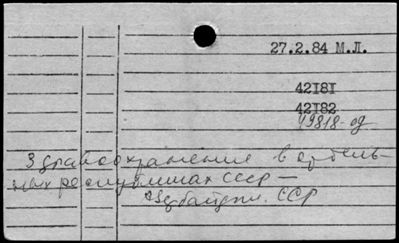 27.2.84 М.Л.
42181
42182
49818-од
Здравоохранение в отдель-
ных республиках СССР —
Азербайдж. ССР